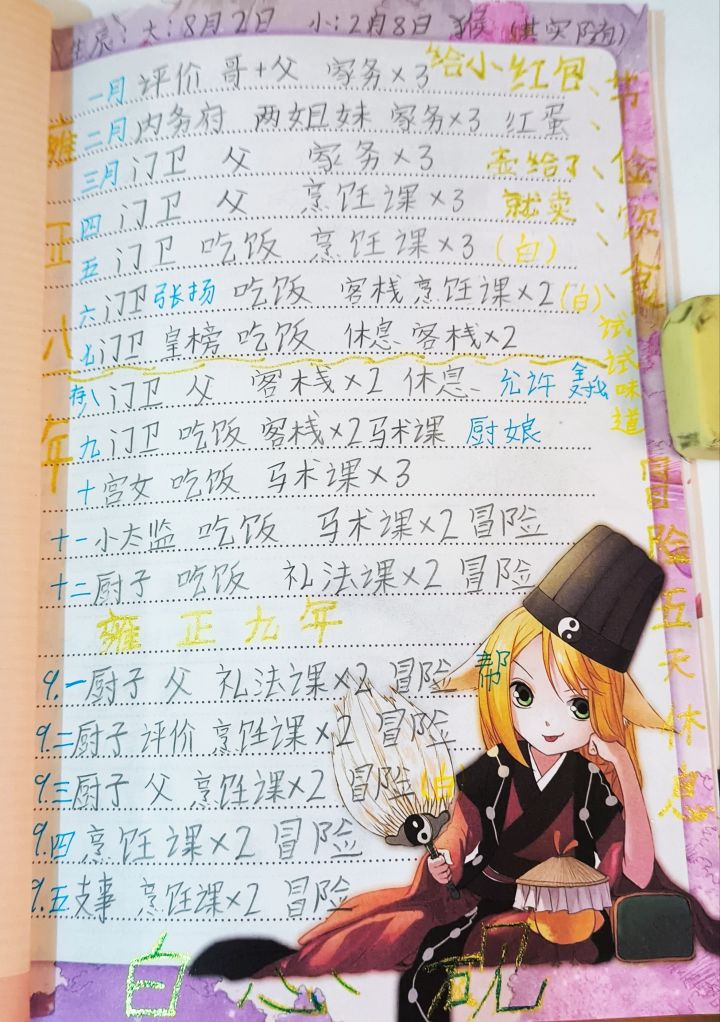 生辰：大：8月2日 小：2月8日 猴（其实随）
一月 评价 哥+父 家务×3 给小红包、
二月 内务府 两姐妹 家务×3 红蛋
三月 门卫 父 家务×3
四 门卫 父 烹饪课×3 就卖
五 门卫 吃饭 烹饪课×3（白）
六 门卫 张扬 吃饭 客栈烹饪课×2（白）
七 门卫 皇榜 吃饭 休息 客栈×2
存八 门卫 父 客栈×2 休息 允许
九 门卫 吃饭 客栈×2马术课 厨娘
十 宫女 吃饭 马术课×3
十一 小太监 吃饭 马术课×2 冒险
十二 厨子 吃饭 礼法课×2 冒险
雍正九年
9.一厨子 父 礼法课×2 冒险 帮
9.二厨子 评价 烹饪课×2 冒险
9.三厨子 父 烹饪课×2 冒险（白
9.四 烹饪课×2 冒险
9.五支事 烹饪课×2 冒险
白心砚
雍正八年
节俭饮食、
试试味道
冒险五天休息